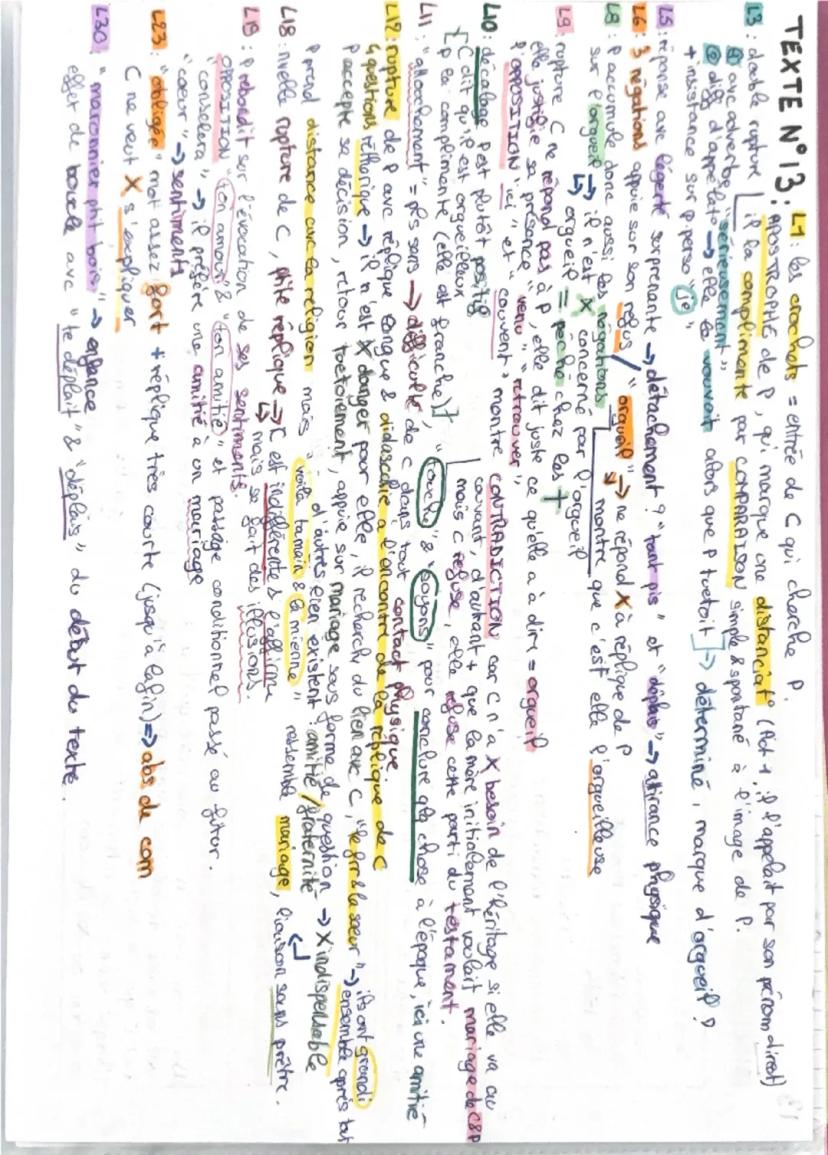 TEXTE N°13 : L1 : les crochets = entrée de C qui cherche P.
APOSTROPHE de P, qui marque une distanciat° (Act 1 : il l'appelait par son prénom direct)
L3 : double rupture il la complimente par COMPARAISON simple & spontané à l'image de P.
① avec adverbe "sérieusement"
② diff d'appelat° → elle le vouvoit alors que P tutoit → déterminé, marque d'orgueil ?
+ insistance sur p perso "je"
L5 : réponse avec légèreté surprenante → détachement ? "tout pis" et "déplais" → attirance physique
L6 : 3 négations appuie sur son refus / "orgueil" → ne répond X à réplique de P
L8 : P accumule donc aussi les négations montre que c'est elle l'orgueilleuse
sur l'orgueil → il n'est X concerné par l'orgueil
↳ orgueil = péché chez les +
L9 : rupture C ne répond pas à P, elle dit juste ce qu'elle a à dire = orgueil
elle justifie sa présence "venu" "retrouver"
L'OPPOSITION "ici" et "couvent" montre CONTRADICTION car C n'a X besoin de l'héritage si elle va au
couvent, d'autant + que la mère initialement voulait mariage de C&P
mais C refuse, elle refuse cette parti du testament.
L10 : décalage P est plutôt positif
{ C dit qu'P est orgueilleux
P la complimente (elle est franche) }, "conclu" & "soyons" pour conclure qq chose à l'époque, ici une amitié
L11 : "attouchement" = pls sens → difficulté de C dans tout contact physique.
L12 : rupture de P avec réplique longue & didascalie à l'encontre de la réplique de C
4 questions réthorique → il n'est X danger pour elle, il recherche du lien avec C, "le frr & la sœur" → ils ont grandi
P accepte sa décision, retour tutoiement, appuie sur mariage sous forme de question → ensemble après tout
d'autres lien existent : amitié / fraternité → X indispensable
P prend distance avec la religion mais "voilà ta main & la mienne" ressemble mariage, liaison sans prêtre.
L18 : nvelle rupture de C, ptite réplique → C est indifférente & l'affirme
↳ mais se fait des illusions.
L19 : P rebondit sur l'évocation de ses sentiments.
OPPOSITION "ton amour" & "ton amitié" et passage conditionnel passé au futur.
"consolera" → il préfère une amitié à un mariage
"cœur" → sentiments
L23 : "obligée" mot assez fort + réplique très courte (jusqu'à la fin) ⇒ abs de com
C ne veut X s'expliquer
L30 : "maronnier ptit bois" → enfance
effet de boucle avec "te déplait" & "déplais" du début du texte.